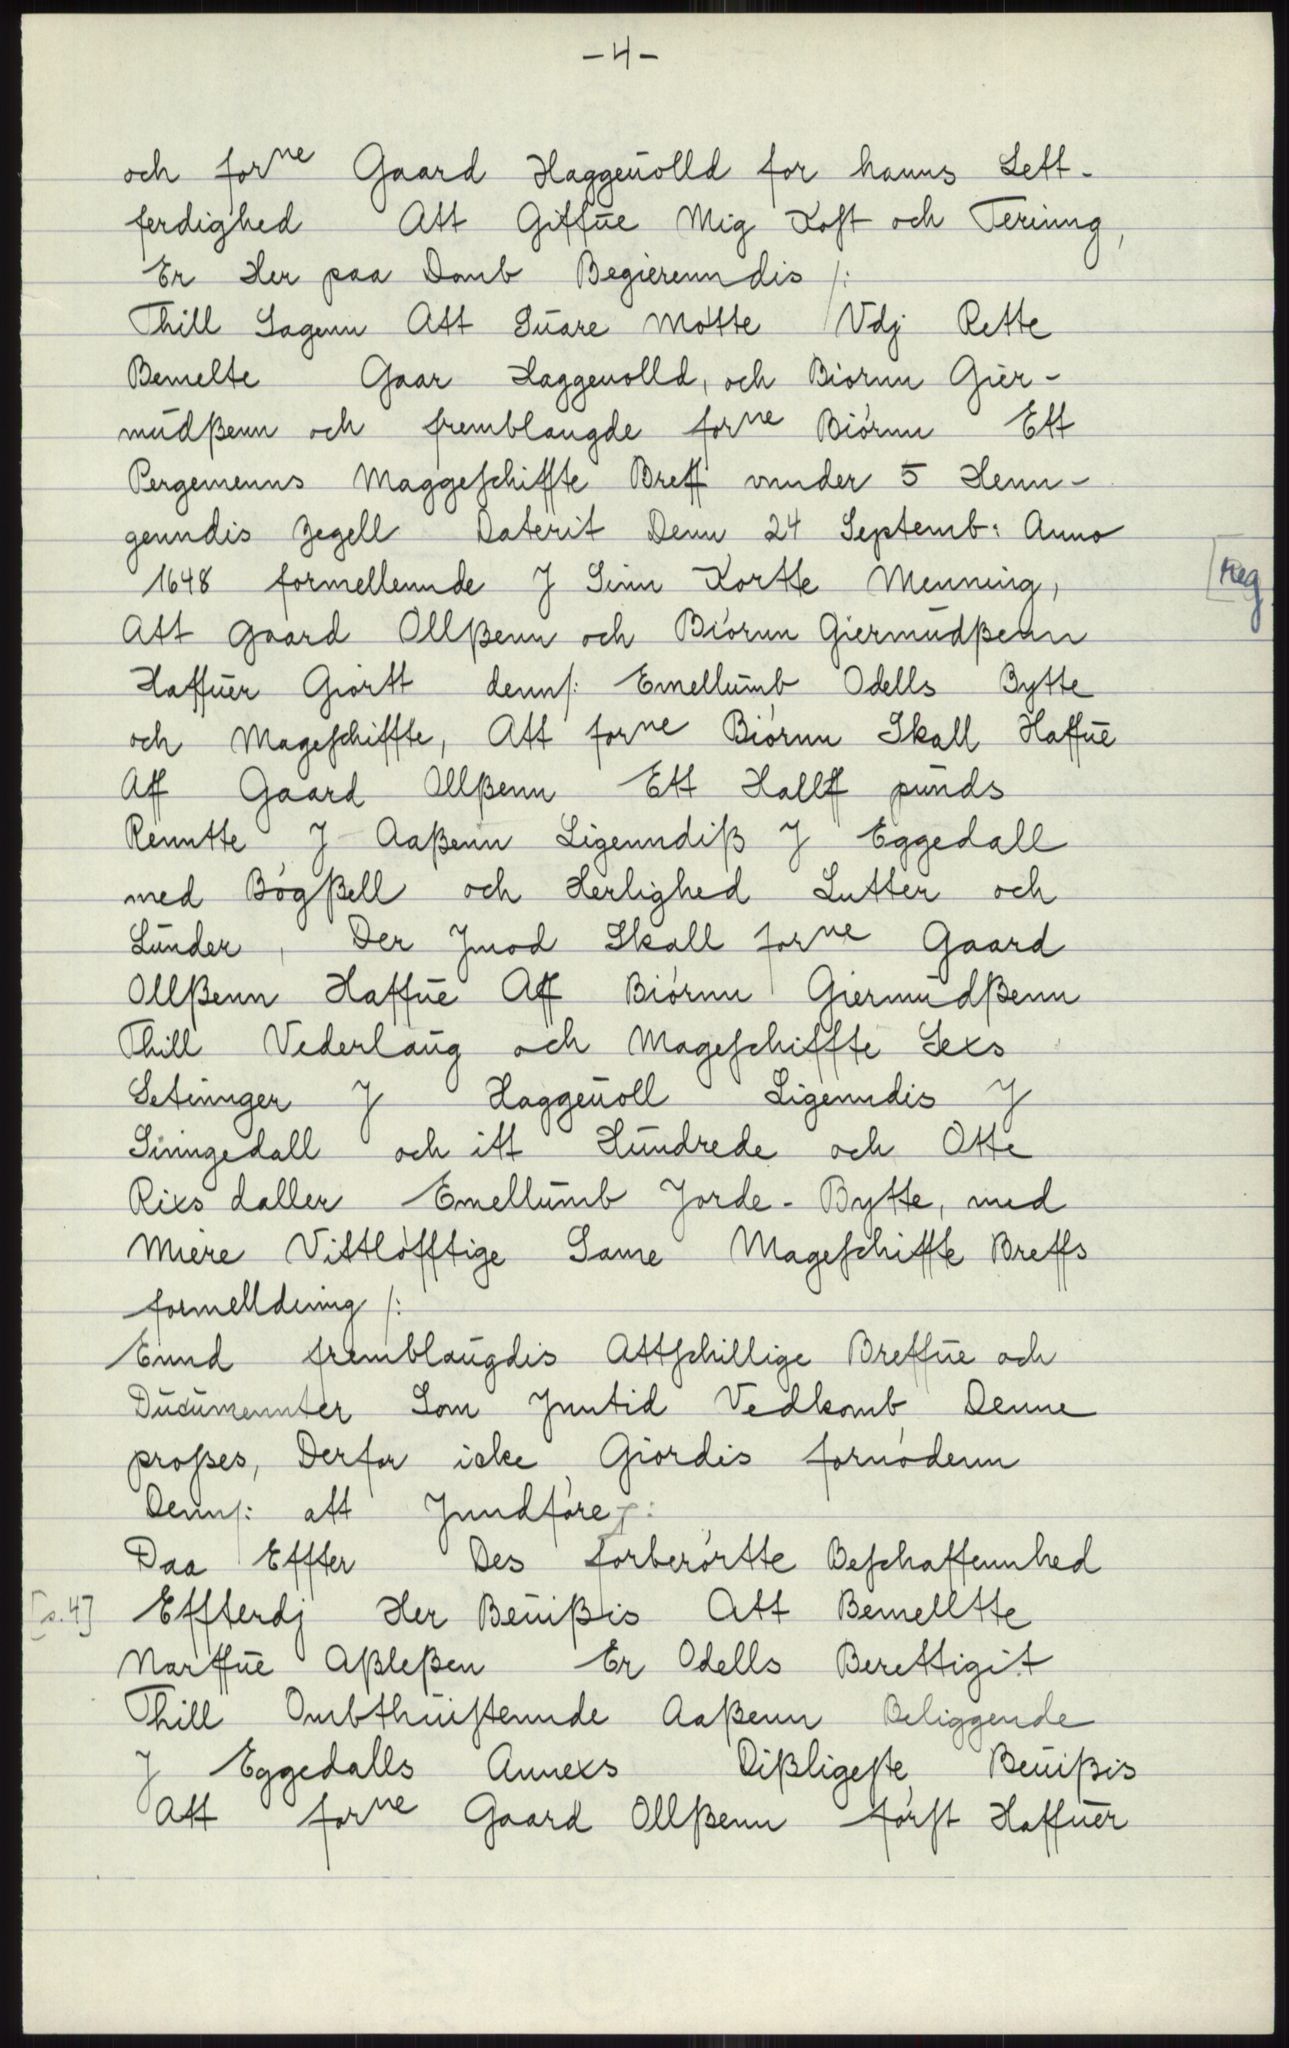 -4-
och forne Gaard Haggeuolld for hanns Lett-
ferdighed Att Giffue Mig Kost och Terinng,
Er Her paa Domb Begierenndis /:
Thill Sagenn Att Suare Møtte Vdj Rette
Bemelte Gaar Haggeuolld, och Biørnn Gier-
mudßenn och fremblangde forne Biørnn Ett
Pergemenns Maggeschiffte Breff vnnder 5 Henn-
genndis Zegell Daterit Denn 24 Septemb: Anno
1648 formellennde J Sinn Kortte Menning,
[reg
Att Gaard Ollßenn och Biørnn Giermudßenn
Haffuer Giørtt denn/: Emellumb Odells Bytte
och Mageschiffte, Att forne Biørnn Skall Haffue
Aff Gaard Ollßenn Ett Hallff punds
Renntte J Aaßenn Ligenndiß J Eggedall
med Bøgßell och Herlighed Lutter och
Lunder, Der Jmod Skall forne Gaard
Ollßenn Haffue Aff Biørnn Giermudßenn
Thill Vederlaug och Mageschiffte Sexs
Setinnger J Haggeuoll Ligenndis J
Sinngedall och itt Hundrede och Otte
Rixs daller Emellumb Jorde-Bytte, med
Miere Vittløfftige Same Mageschiffte Breffs
formelldning /:
Ennd fremblaugdis Attschillige Breffue och
Ducumennter Som Jnntid Vedkomb Denne
proßes, Derfor icke Giordis fornødenn
Denn/: att Jnndføre /:
Daa Effter Des forberørtte Beschaffennhed
[s.4] Effterdj Her Beuißis Att Bemelltte
Narffue Aßleßen Er Odells Berettigit
Thill Ombthuistennde Aaßenn Beliggende
J Eggedalls Annexs Dißligeste Beuißis
Att forne Gaard Ollßenn først Haffuer